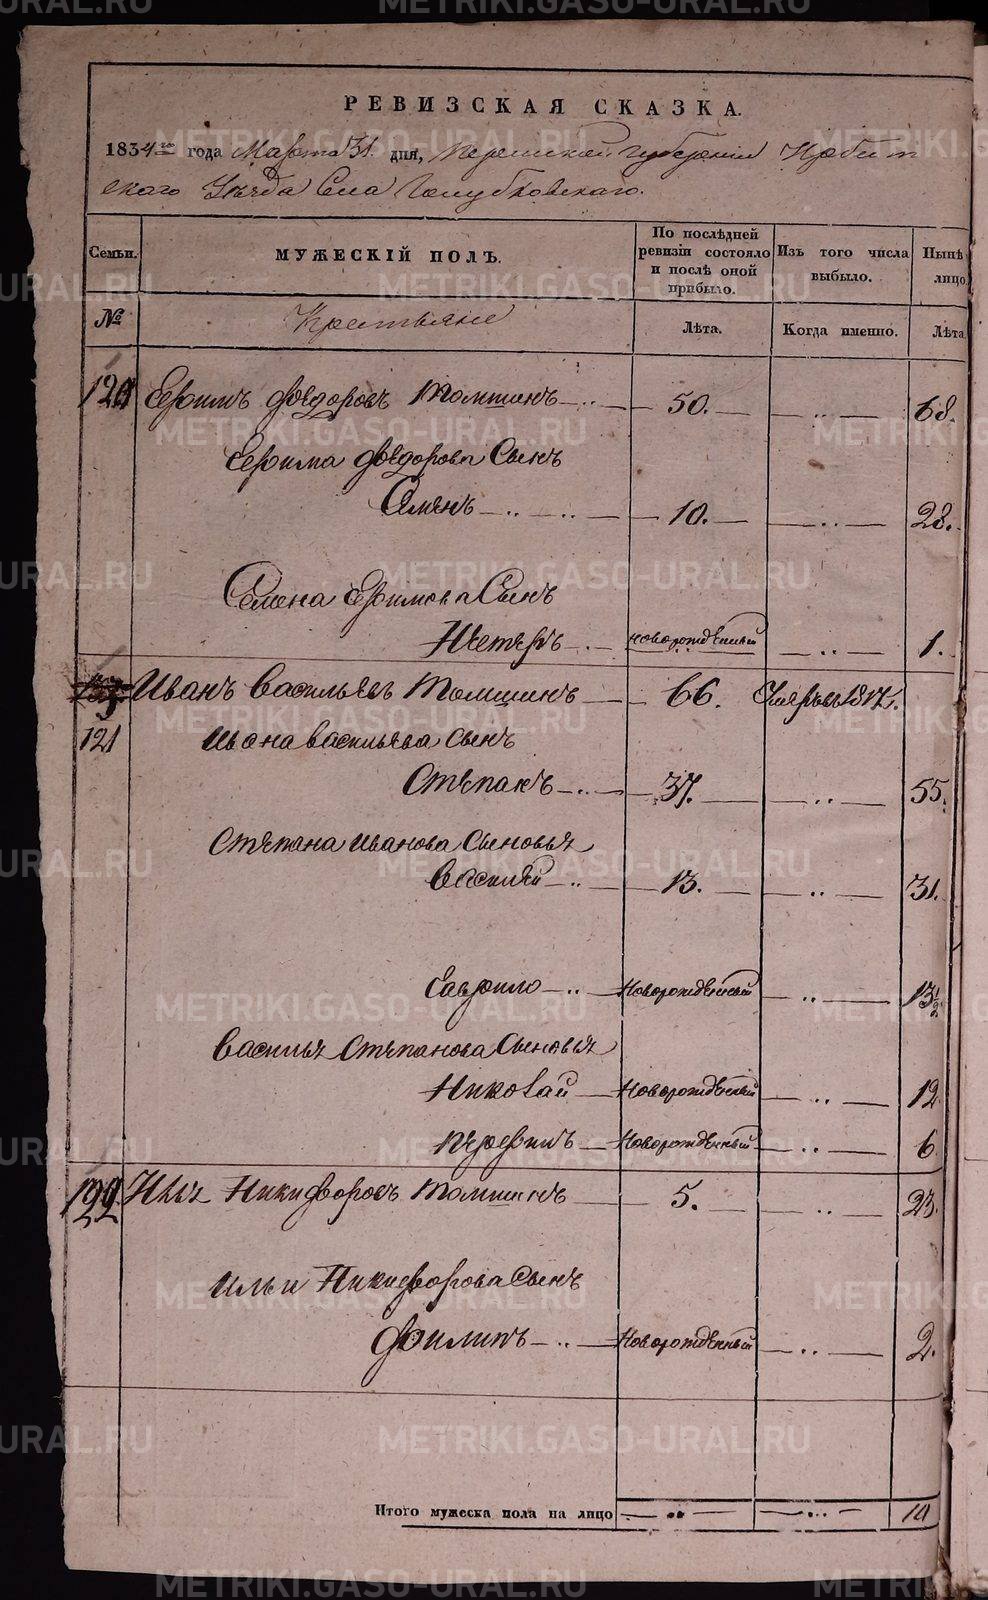 РЕВИЗСКАЯ СКАЗКА.
1834го года Марта 31. дня, Пермской губернии Ирбит
ского Уезда Села Голубковского.
Семьи. МУЖЕСКІЙ ПОЛЪ. По послѣдней ревизіи состояло и послѣ оной прибыло. Изъ того числа выбыло. Нынѣ лицо
№ Крестьяне Лѣта. Когда именно. Лѣта
120 Ефимъ Федоровъ Томшинъ 50. 68.
Ефима Федорова Сынъ
Семенъ 10. 28.
Семена Ефимова Сынъ
Петръ новорожденный 1.
Иванъ Васильевъ Томшинъ 66. 1817.
121 Ивана Васильева Сынъ
Степанъ 37. 55.
Степана Иванова Сыновья
Василей 13. 31.
Гаврило Новорожденный 13 1/2
Василья Степанова Сыновья
Николай Новорожденный 12
Новорожденный 6
122 Илья Никифоровъ Томшинъ 5. 23.
Ильи Никифорова Сынъ
Филипъ Новорожденный 2.
Итого мужеска пола на лицо 10
METRIKI.GASO-URAL.RU